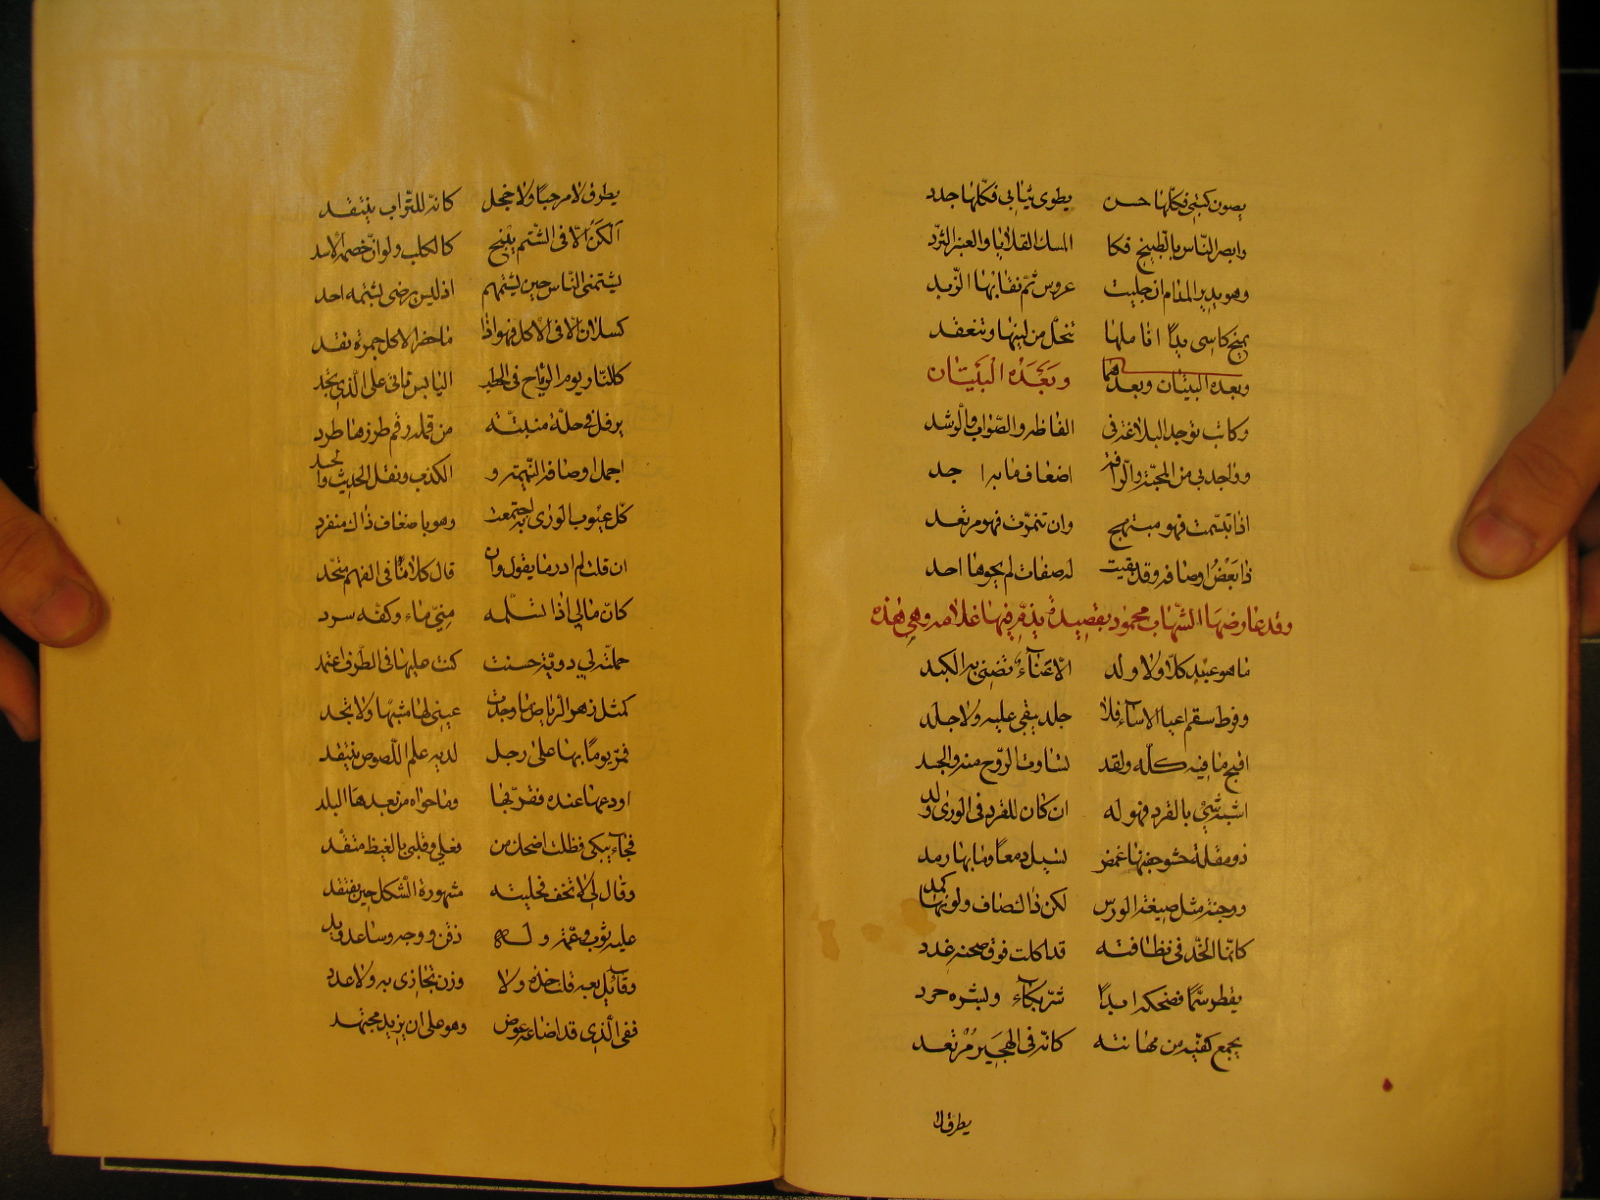 يصون كتبي فكلها حسن يطوي ثيابي فكلها جدد
وابصر الناس بالطبيخ فكا المسك القلايا والعنبر الثرد
وهو يدير المدام ان جليت عروس ثم نقابها الزبد
يمنح كاسي يدًا انا ملها تنحل من لينها وتنعقد
وبعده البيتان وبعدهما وَبَعْدَه البَيتَان
وكاتب توجد البلاغة في الفاظه والصواب والرشد
وواجد بي من المحبة والرافة اضعاف ما به اجد
اذا تبسمت فهو مبتهج وان تنمرت فهو مرتعد
ذا بَعْضُ اوصافه وقد بقيت له صفات لم يحوها احد
وقد عارضها الشهاب محمود بقصيدة يذم فيها غلامه وهي هذه
ما هو عبد كلا ولا ولد الا عناء تضنى به الكبد
وفرط سقم اعيا الاساء فلا جلد يبقى عليه ولا جلد
اقبح ما فيه كله ولقد تساوت الروح منه والجسد
اشبه شيء بالقرد فهو له ان كان للقرد في الورى ولد
ذو مقلة حشو جفنها غمص تسيل دمعا وما بها رمد
ووجنة مثل صبغة الورس لكن ذاك صاف ولونها كمد
كانما الخد في نظافته قد اكلت فوق صحنه غدد
يقطر سمًا فضحكه ابدًا شر بكاء وبشره حرد
يجمع كفيه من مهانته كانه في الهجير مُرْتعد
يطرق لا
يطرق لا من حيًا ولا خجل كانه للتراب ينتقد
اَلكَن الّا في الشتم ينبح كالكلب ولو ان خصمه الاسد
يشتمني الناس حين يشتمهم اذ ليس يرضى بشتمه احد
كسلان الا في الاكل فهو اذا ما حضر الاكل جمرة تقد
كالنار يوم الرياح في الحطب اليابس تاتي على الذي تجد
يرفل في حلة منبتة من قمله رقم طرزها طرد
اجمل اوصافه النميمة و الكذب ونقل الحديث والحسد
كل عيوب الورى به اجتمعت وهو باضعاف ذاك منفرد
ان قلت لم ادر ما يقول وان قال كلانا في الفهم متحد
كان مالي اذا تسلمه مني ماء وكفه سرد
حملته لي دوية حسنت كنت عليها في الظرف اعتمد
كمثل زهر الرياض ما وجدت عيني لها مشبها ولا تجد
فمر يوما بها على رجل لديه علم اللصوص ينتقد
اودعها عنده ففر بها وما حواه من بعدها البلد
فجاء يبكي فظلت اضحك من فعلي وقلبي بالغيظ متقد
وقال لي لا تخف فحليته مشهورة الشكل حين يفتقد
عليه ثوب وعمة وله ذقن ووجه وساعد ويد
وقائل بعه قلت خذه ولا وزن تجازي به ولا عدد
ففي الذي قد اضاعه عوض وهو على ان يزيد مجتهد